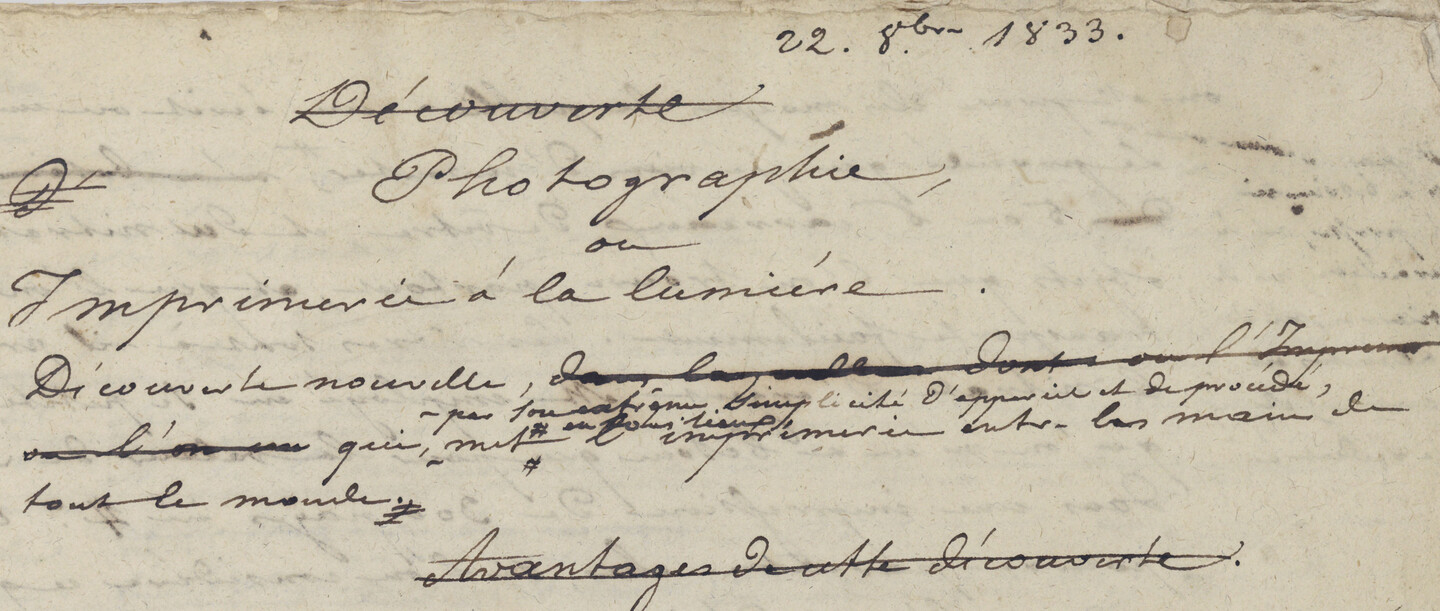 22. 8bre 1833.
Découverte
Photographie,
ou
Imprimerie à la lumiére.
Découverte nouvelle, dont ou l'Imprimer
par son extrême simplicité d'appareil et de procédé,
ou l'on en qui, met # l'imprimerie entre les mains de
#
tout le monde.
Avantages de cette découverte.